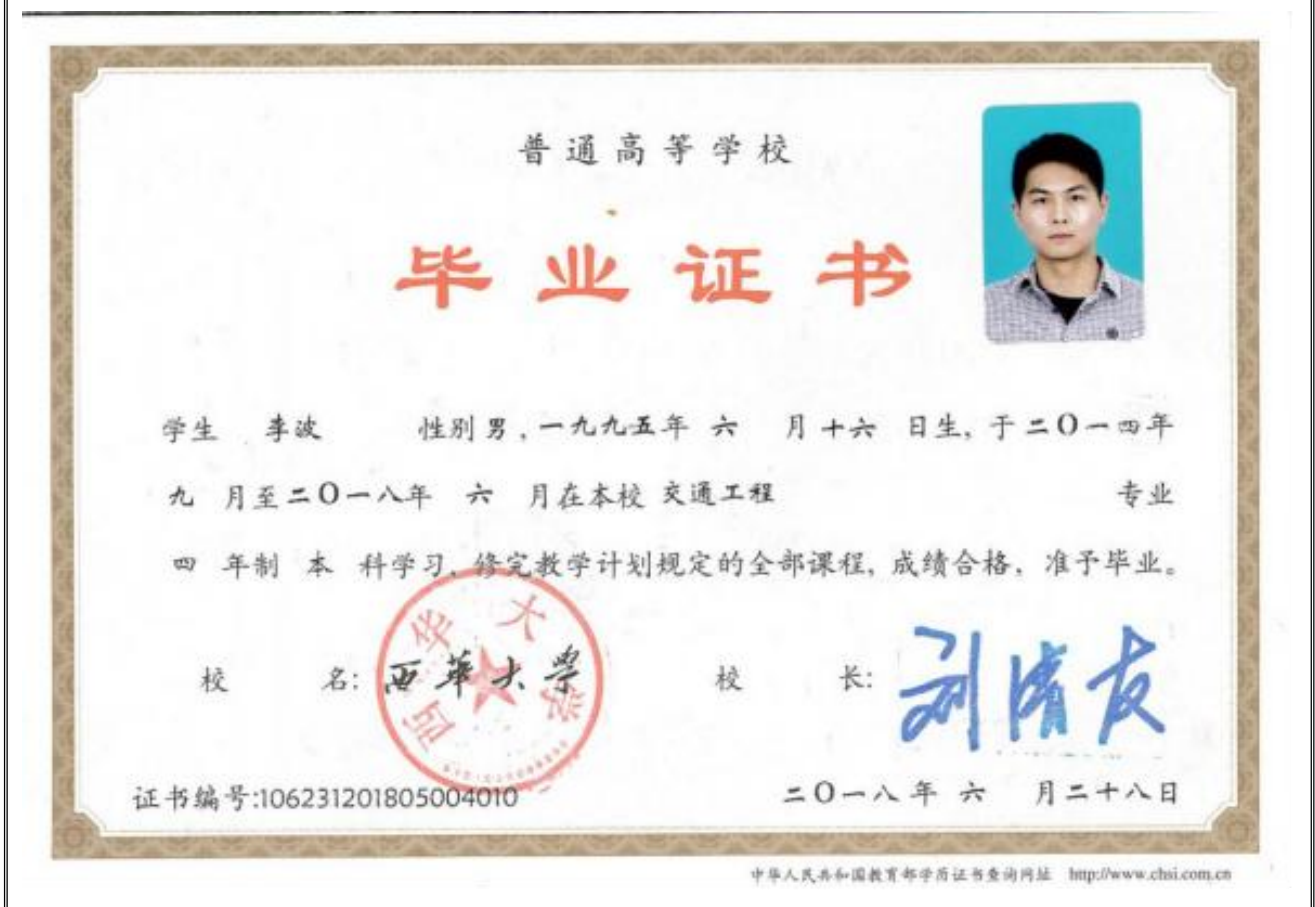 普通高等学校
毕业证书
学生 李波 性别 男，一九九五年 六 月 十六 日生，于二〇一四年
九 月至二〇一八年 六 月在本校 交通工程 专业
四 年制 本 科学习，修完教学计划规定的全部课程，成绩合格，准予毕业。
校 名：西华大学 校 长：刘清友
西华大学
证书编号:106231201805004010 二〇一八年 六 月二十八日
中华人民共和国教育部学历证书查询网址 http://www.chsi.com.cn